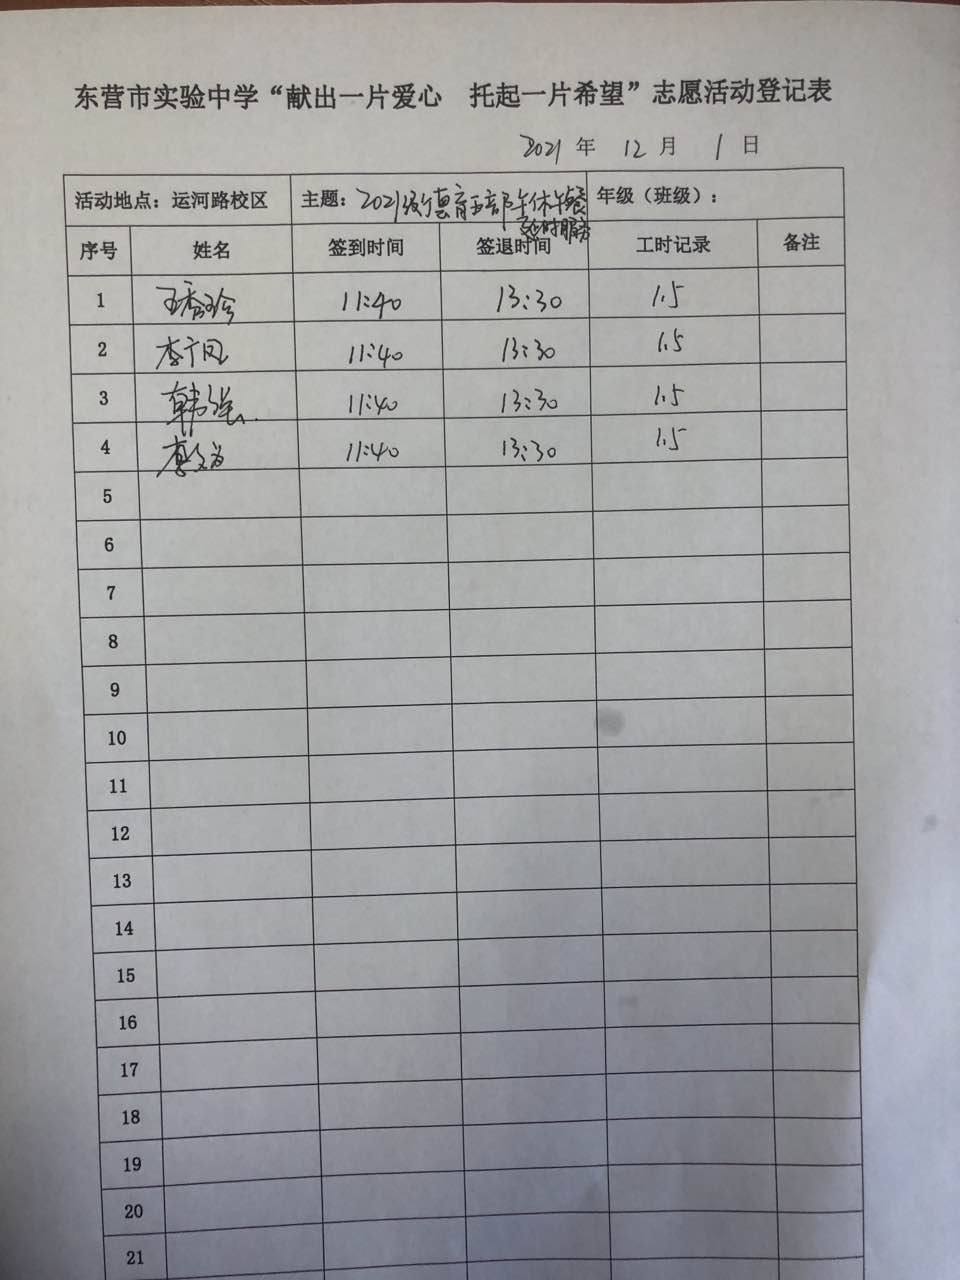 东营市实验中学“献出一片爱心 托起一片希望”志愿活动登记表
2021 年 12 月 1 日
活动地点：运河路校区 主题：2021级德育五部午休午餐 年级（班级）：
延时服务
序号 姓名 签到时间 签退时间 工时记录 备注
1 王秀玲 11:40 13:30 1.5
2 李广凤 11:40 13:30 1.5
3 韩强 11:40 13:30 1.5
4 11:40 13:30 1.5
5
6
7
8
9
10
11
12
13
14
15
16
17
18
19
20
21